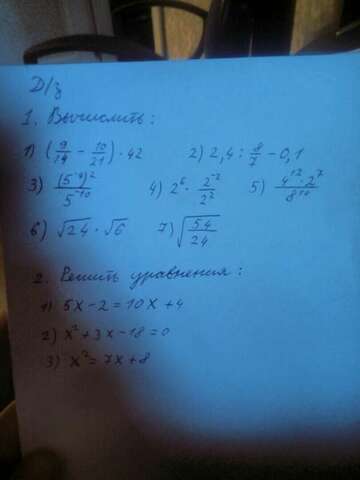 Д/з
1. Вычислить:
1) (9/14 - 10/21) · 42 2) 2,4 : 8/7 - 0,1
3) (5⁻⁴)² / 5⁻¹⁰ 4) 2⁶ · 2⁻² / 2² 5) 4¹² · 2⁷ / 8¹⁰
6) √24 · √6 7) √(54/24)
2. Решить уравнения:
1) 5x - 2 = 10x + 4
2) x² + 3x - 18 = 0
3) x² = 7x + 8